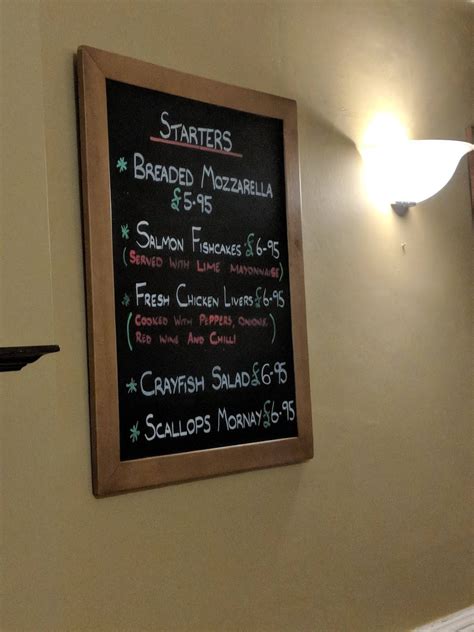 STARTERS
* BREADED MOZZARELLA
£5.95
* SALMON FISHCAKES £6.95
(SERVED WITH LIME MAYONNAISE)
* FRESH CHICKEN LIVERS £6.95
(COOKED WITH PEPPERS, ONIONS,
RED WINE AND CHILLI)
* CRAYFISH SALAD £6.95
* SCALLOPS MORNAY £6.95